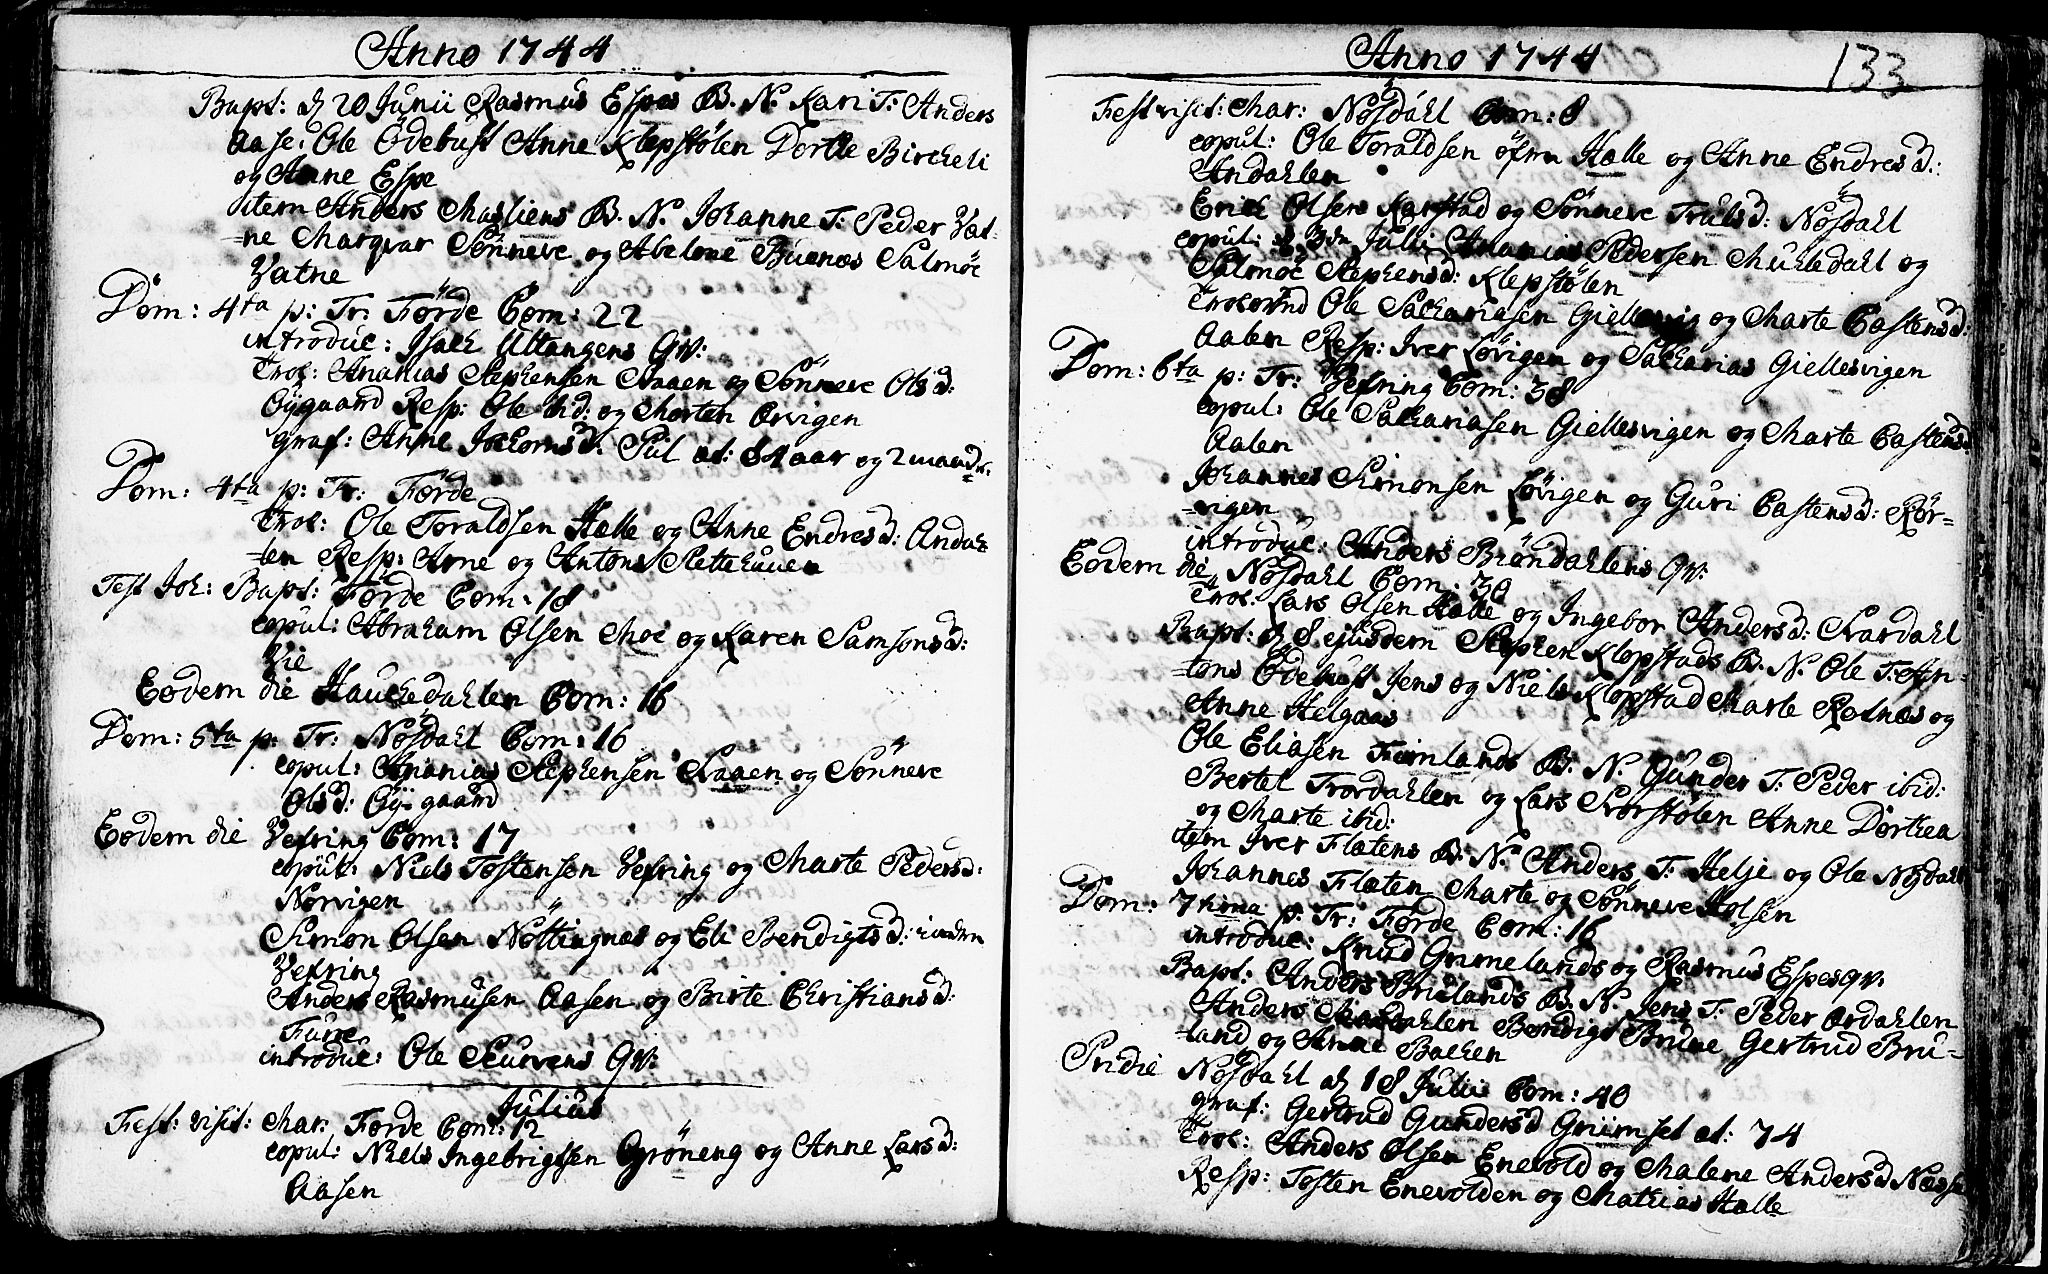 Anno 1744
Bapt: d 20 Junii Rasmus Espes B. N. Kari T: Anders
Aase, Ole Ödebust Anne Klepstölen Dorthe Birckeli
og Anne Espe
item Anders B. N. Johanne T: Peder Vat-
=ne Margvar Sönneve og Abelone Buenæs Salmöe
Vatne
Dom: 4ta p: Tr: Förde Com: 22
introduc: Isach Utvangens Qv:
Trol: Ananias Stephensen Aaaen og Sönneve Olsd:
Öÿgaard Resp: Ole ibid: og Morten Orvigen
graf: Anne Jochomsd: Sül æt: 84 aar og 2 maand:
Dom: 4ta p: Tr: Förde
Trol: Ole Toraldsen Halle og Anne Endresd: Andah
len Resp: Arne og Antons Slettehauen
Fest Joh: Bapt: Förde Com: 18
copul: Abraham Olsen Moe og Karen Samsonsd:
Vie
Eodem die Hauckedahlen Com: 16
Dom: 5ta p: Tr: Nösdahl Com: 16
copul: Ananias Stephensen Aaaen og Sönneve
Olsd: Öÿgaard
Eodem die Vefring Com: 17
copul: Niels Tostensen Vefring og Marte Pedersd:
Norvigen
Simon Olsen Nöttingnæs og Eli Bendigtsd:
Vefring
Anders Rasmusen Aasen og Birte Christiansd:
Furre
introduc: Ole Skurvens Qv:
Julius
Fest: visit: Mar: Förde Com: 12
copul: Niels Ingebrigtsen Gröneng og Anne Larsd:
Aasen
Anno 1744
133
Fest visit: Mar: Nösdahl Com: 8
copul: Ole Toraldsen öfvre Halle og Anne Endresd:
Andahlen
Erich Olsen Karstad og Sönneve Trulsd: Nösdahl
copul: d 3die Julii Ananias Pedersen Mukledahl og
Salmöe Stephensd: Klepstölen
Trolov: Ole Sachariasen Giellesvig og Marte Castensd:
Aalen Resp: Iver Lövigen og Sacharias Giellesvigen
Dom: 6ta p: Tr: Vefring Com: 38
copul: Ole Sachariasen Giellesvigen og Marte Castensd:
Aalen
Johannes Simonsen Lövigen og Guri Castensd: Rör=
=vigen
introduc: Anders Bröndahlens Qv:
Eodem die Nösdahl Com: 30
Trol: Lars Olsen Halle og Ingebor Andersd: Svardahl
Bapt: d 8 ejusdem Stephen Klopstads B. N. Ole T: An-
=tons Ödebust Jens og Niels Klopstad Marte Rotnæs og
Anne Helgaas
Ole Eliasen Fimlands B. N. Gunder T: Peder ibid:
Bertel Trordahlen og Lars Svorstölen Anne Dorthea
og Marte ibid:
item Iver Flatens B. N. Anders T: Helje og Ole Nÿdahl
Johannes Flaten Marte og Sönneve Holsen
Dom: 7tima p: Tr: Förde Com: 16
introduc: Knud Grimelands og Rasmus Espes qv:
Bapt: Anders Brulands B. N. Jens T: Peder Ordahlen
Anders Bendigt Bruue Gertrud Bru-
=land og Anne Backen
Pridie Nösdahl d 18 Julii Com: 40
graf: Gertrud Gundersd Grimset æt: 74
Trol: Anders Olsen Enevold og Malene Andersd
Resp: Tosten Enevolden og Mathias Halle